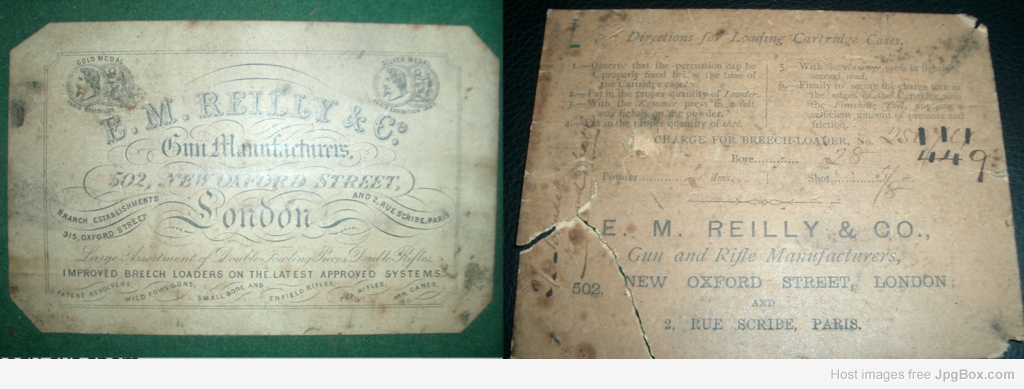 GOLD MEDAL
SILVER MEDAL
E. M. REILLY & Co.
Gun Manufacturers,
502, NEW OXFORD STREET,
BRANCH ESTABLISHMENTS
AND 2, RUE SCRIBE, PARIS
315, OXFORD STREET
London
Large Assortment of Double Fowling Pieces, Double Rifles,
IMPROVED BREECH LOADERS ON THE LATEST APPROVED SYSTEMS.
PATENT REVOLVERS, WILD FOWL GUNS, SMALL BORE AND ENFIELD RIFLES, RIFLES, CANES,
Directions for Loading Cartridge Cases.
1.—Observe that the percussion cap be
properly fixed in the base of
the Cartridge case.
2.—Put in the proper quantity of Powder.
3.—With the Rammer press in a felt
wad tightly on the powder.
4.—Put in the proper quantity of shot.
5.—With the Rammer press in the
second wad.
6.—Finally to secure the charge turn in
the edges of the Cartridge
the Finishing Tool, applying a
sufficient amount of pressure and
friction.
CHARGE FOR BREECH-LOADER, No.
449
Bore 28
Powder 2 dms. Shot 5/8
E. M. REILLY & CO.,
Gun and Rifle Manufacturers,
502, NEW OXFORD STREET, LONDON;
AND
2, RUE SCRIBE, PARIS.
Host images free JpgBox.com